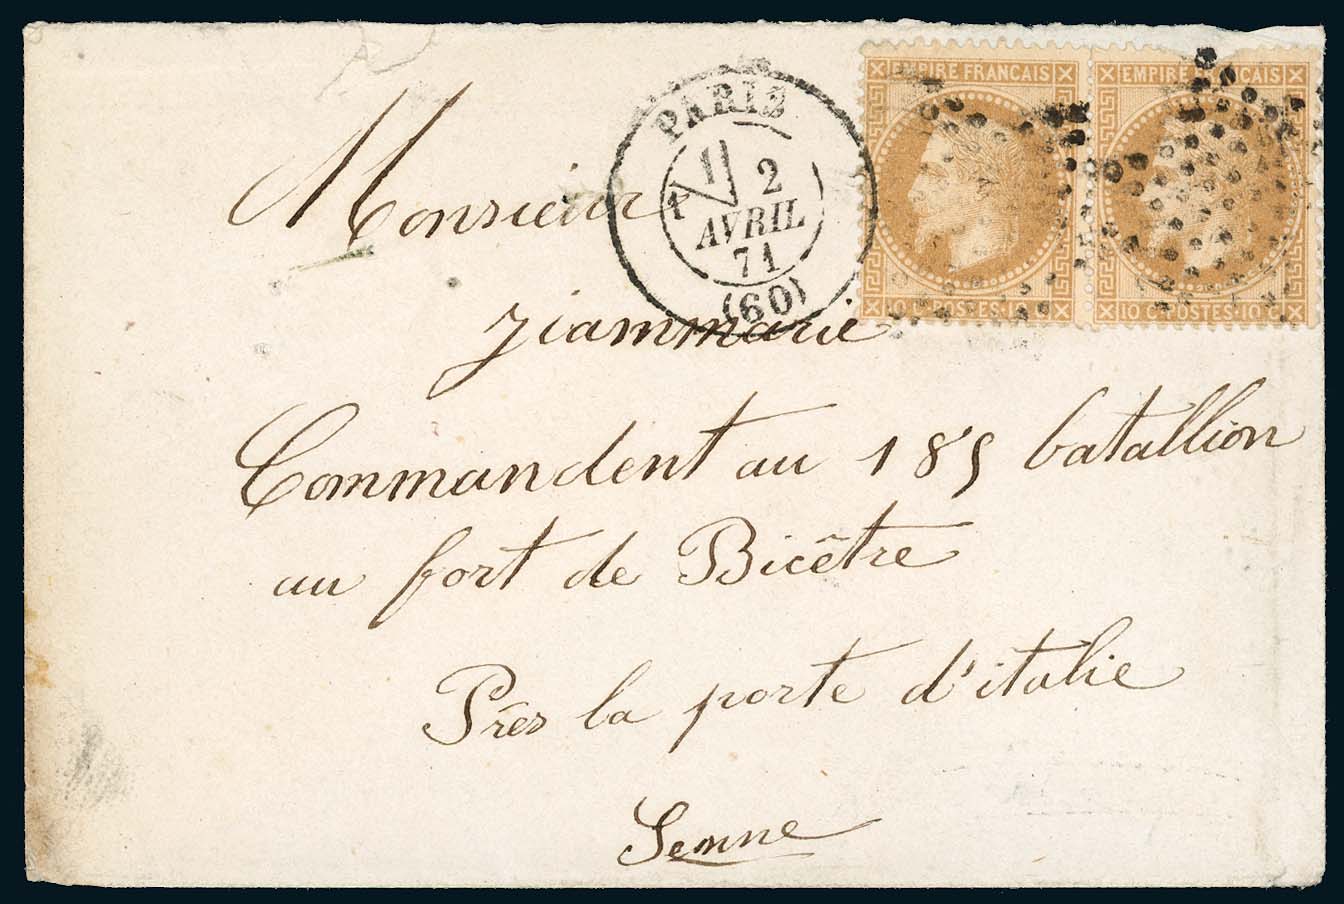 PARIS
1
1 2
AVRIL
71
(60)
EMPIRE FRANCAIS
10 C. POSTES
EMPIRE FRANCAIS
10 C. POSTES 10 C.
Monsieur
Jiammarie
Commandent au 185 batallion
au fort de Bicêtre
Près la porte d'italie
Senne